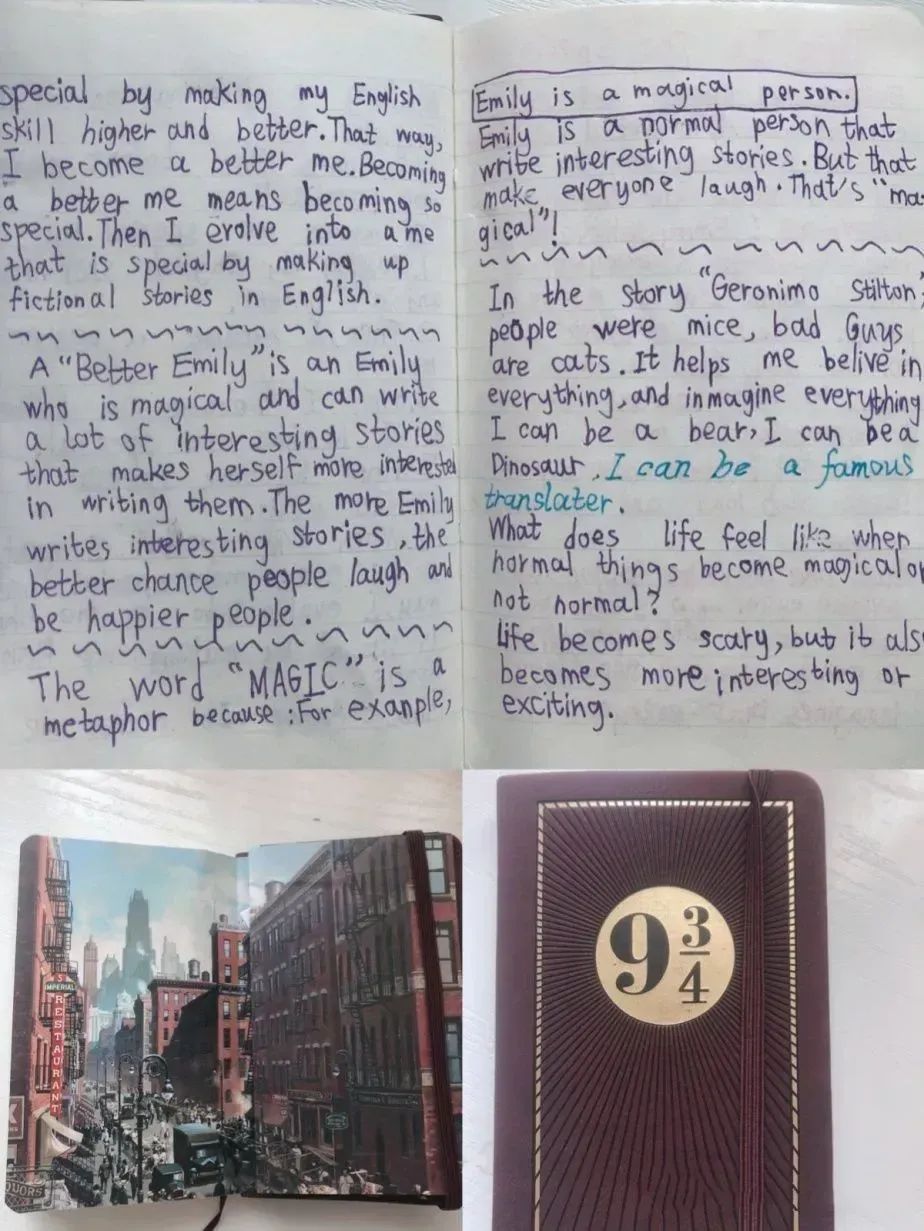 special by making my English
skill higher and better. That way,
I become a better me. Becoming
a better me means becoming so
special. Then I evolve into a me
that is special by making up
fictional stories in English.
A "Better Emily" is an Emily
who is magical and can write
a lot of interesting stories
that makes herself more interested
in writing them. The more Emily
writes interesting stories, the
better chance people laugh and
be happier people.
The word "MAGIC" is a
metaphor because: For exanple,
Emily is a magical person.
Emily is a normal person that
write interesting stories. But that
make everyone laugh. That's "ma-
gical"!
In the story "Geronimo Stilton"
people were mice, bad Guys
are cats. It helps me belive in
everything, and inmagine everything
I can be a bear, I can be a
Dinosaur. I can be a famous
translater.
What does life feel like when
normal things become magical or
not normal?
Life becomes scary, but it als
becomes more interesting or
exciting.
IMPERIAL
RESTAURANT
9 3/4